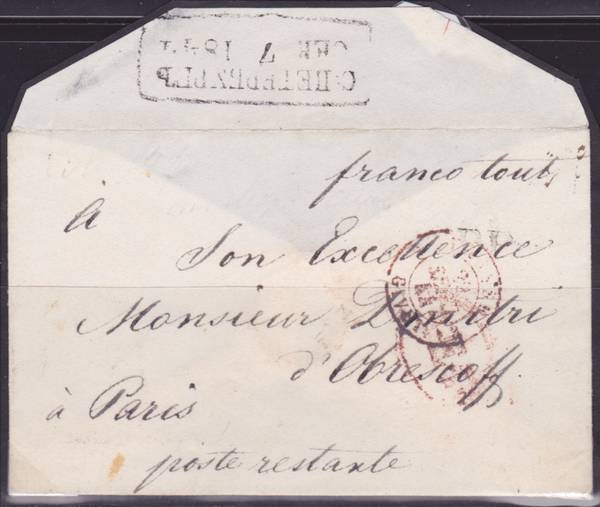 С·ПЕТЕРБУРГЪ
СЕН 7 184
franco tout
à
Son Excellence
Monsieur Dmitri
d'Obrescoff
à Paris
poste restante